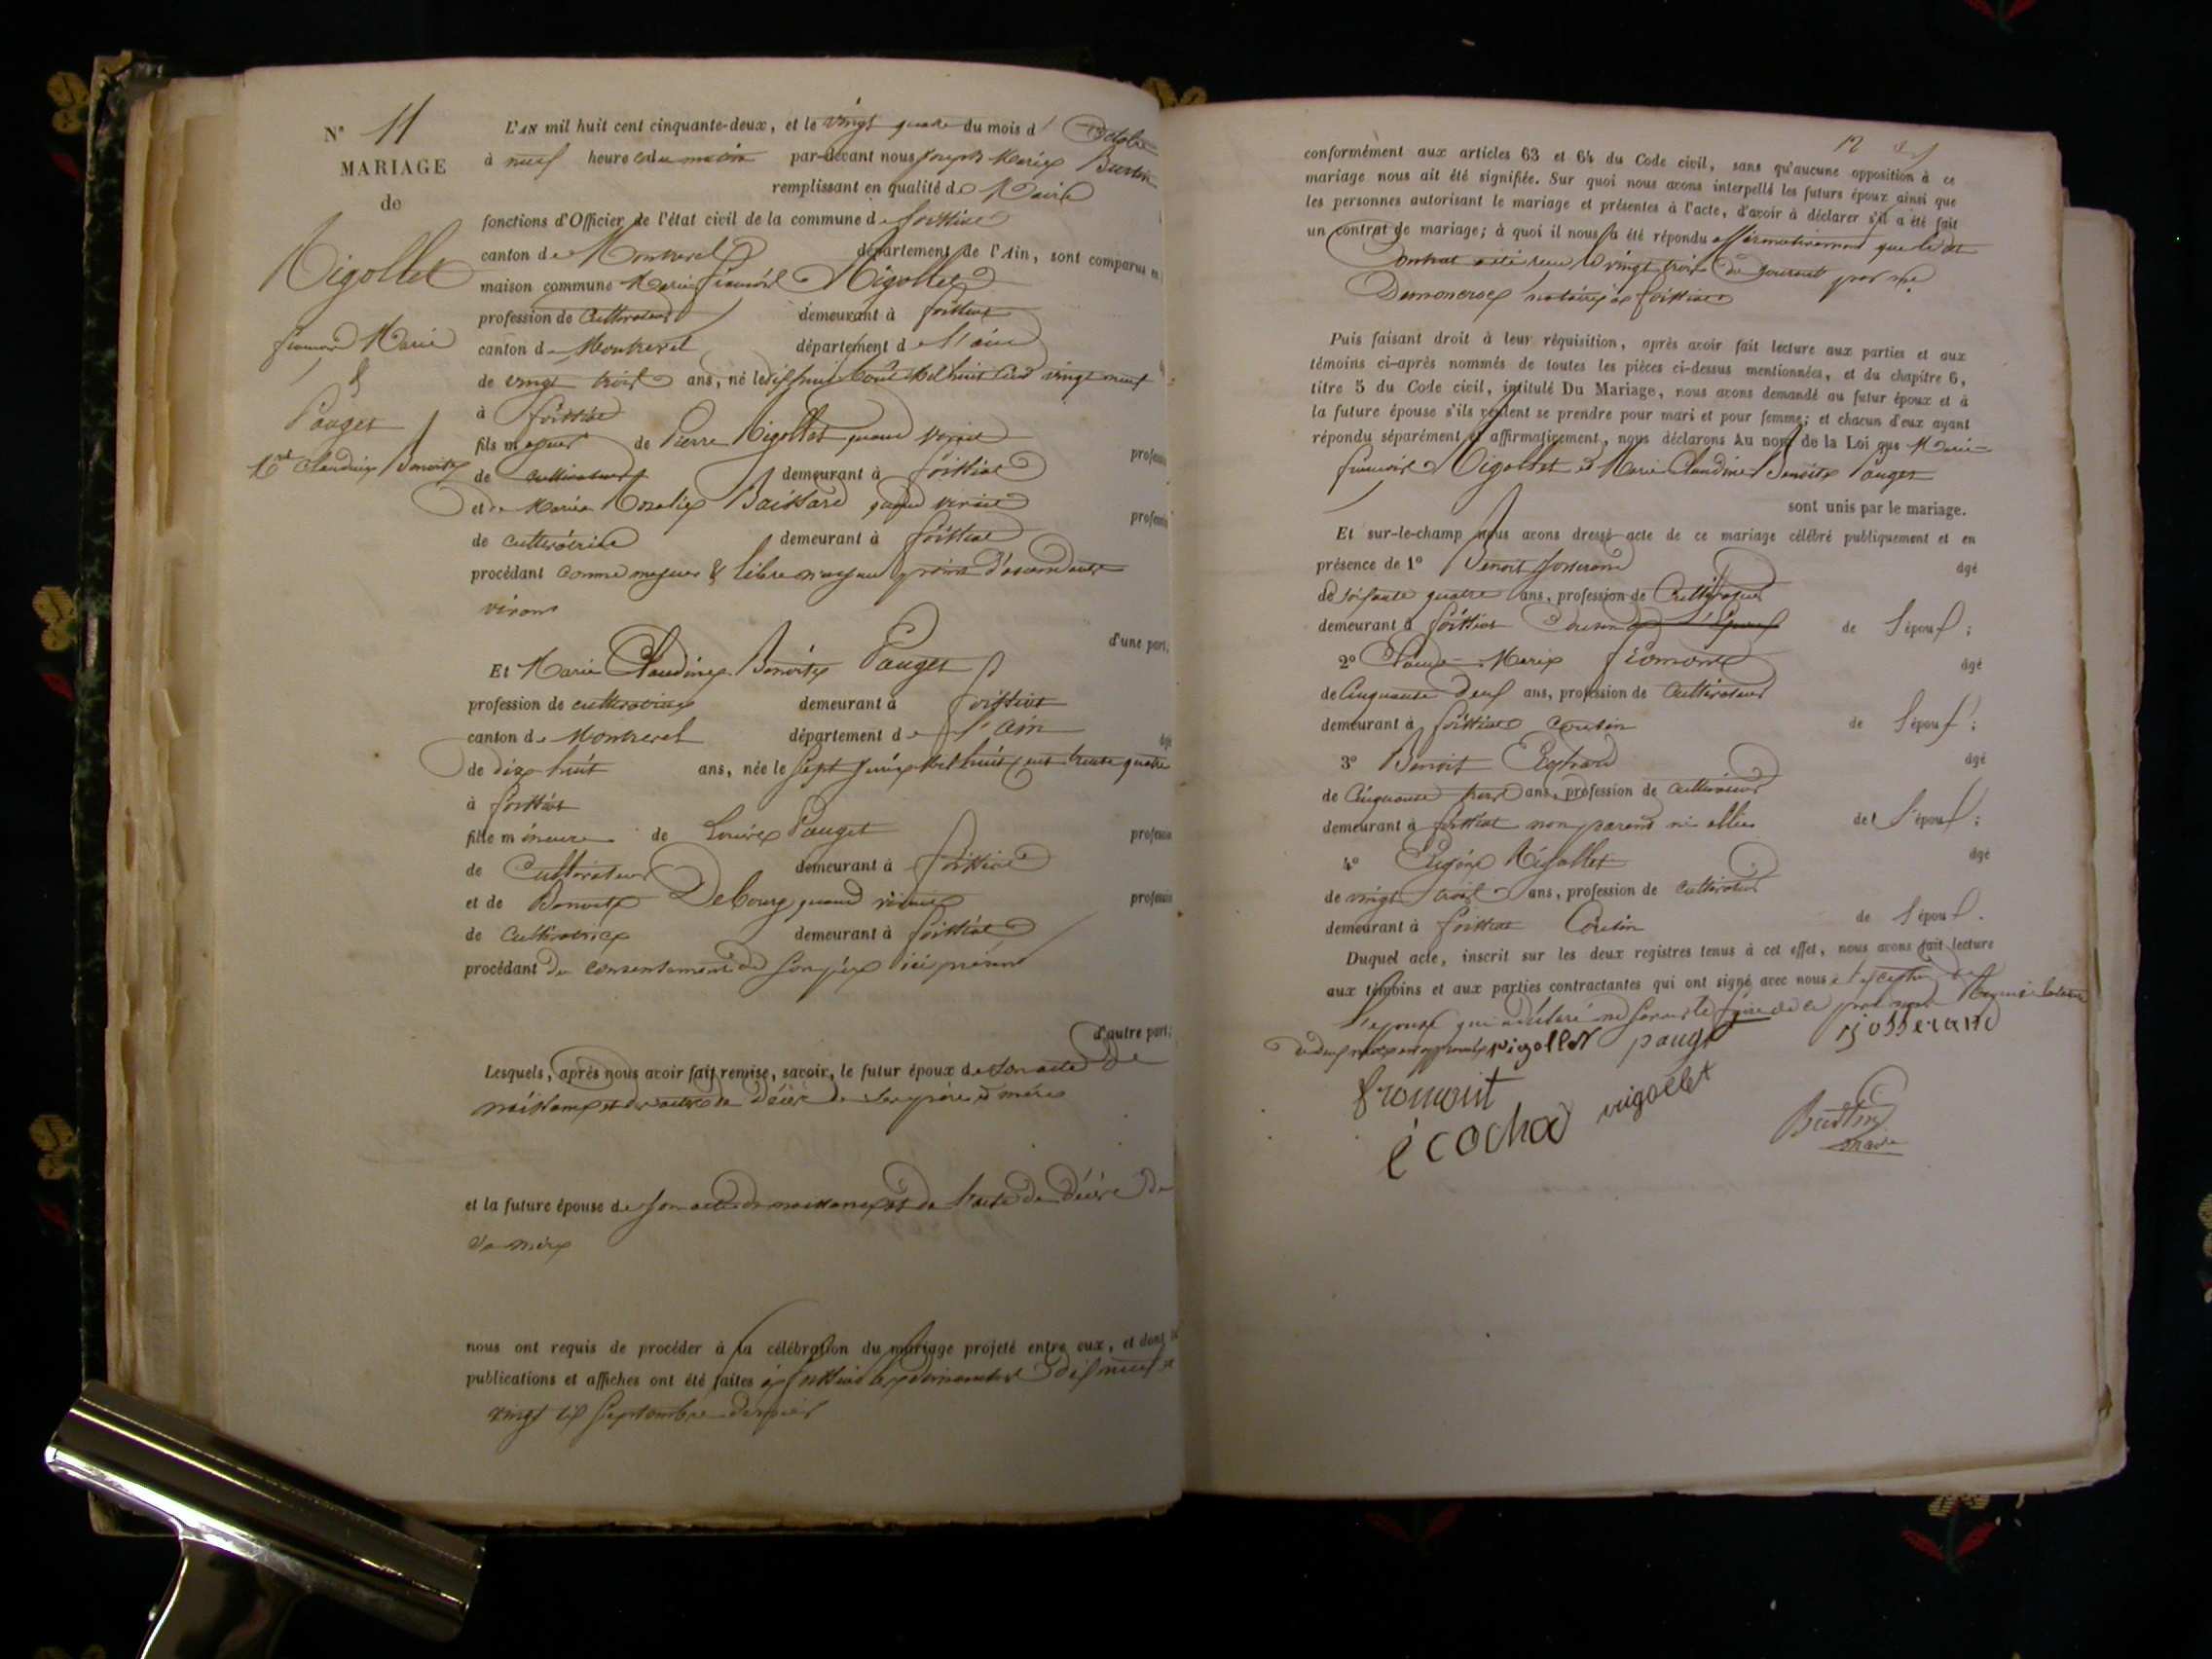 N° 11
MARIAGE
de
Rigollet
françois Marie
&
Pauget
Mie Claudine Benoite
L'AN mil huit cent cinquante-deux, et le vingt quatre du mois d' Octobre
à neuf heures du matin par-devant nous Joseph Marie Burtin
remplissant en qualité de Maire
fonctions d'Officier de l'état civil de la commune de foissiat
canton de Montrevel département de l'Ain, sont comparus en
maison commune Marie françois Rigollet
profession de Cultivateur demeurant à foissiat
canton de Montrevel département de l'ain
de vingt trois ans, né le dix sept août mil huit cent vingt neuf
à foissiat
fils majeur de Pierre Rigollet quand vivait
professi
de cultivateur demeurant à foissiat
et de Marie Rosalie Baissard quand vivait
professi
de cultivatrice demeurant à foissiat
procédant comme majeur & libre n'ayant point d'ascendants
vivans
d'une part;
Et Marie Claudine Benoite Pauget
profession de cultivatrice demeurant à foissiat
canton de Montrevel département de l'Ain
de dix huit ans, née le sept mil huit cent trente quatre
à foissiat
fille mineure de Louis Pauget
profession
de Cultivateur demeurant à foissiat
et de Benoite Debourg quand vivait
profession
de Cultivatrice demeurant à foissiat
procédant du consentement de son père ici présent
d'autre part;
Lesquels, après nous avoir fait remise, savoir, le futur époux de son acte de
naissance et des actes de décès de ses père et mère
et la future épouse de son acte de naissance et de l'acte de décès de
sa mère
nous ont requis de procéder à la célébration du mariage projeté entre eux, et dont
publications et affiches ont été faites à foissiat les dimanches dix neuf et
vingt six septembre dernier
12
conformément aux articles 63 et 64 du Code civil, sans qu'aucune opposition à ce
mariage nous ait été signifiée. Sur quoi nous avons interpellé les futurs époux ainsi que
les personnes autorisant le mariage et présentes à l'acte, d'avoir à déclarer s'il a été fait
un contrat de mariage; à quoi il nous a été répondu affirmativement que ledit
Contrat a été reçu le vingt trois du courant par me
notaire à foissiat
Puis faisant droit à leur réquisition, après avoir fait lecture aux parties et aux
témoins ci-après nommés de toutes les pièces ci-dessus mentionnées, et du chapitre 6,
titre 5 du Code civil, intitulé Du Mariage, nous avons demandé au futur époux et à
la future épouse s'ils veulent se prendre pour mari et pour femme; et chacun d'eux ayant
répondu séparément et affirmativement, nous déclarons Au nom de la Loi que Marie
françois Rigollet et Marie Claudine Benoite Pauget
sont unis par le mariage.
Et sur-le-champ nous avons dressé acte de ce mariage célébré publiquement et en
présence de 1° Benoit Josserand âgé
de soixante quatre ans, profession de Cultivateur
demeurant à foissiat Cousin de l'époux de l'époux;
2° Claude-Marie fromont âgé
de Cinquante deux ans, profession de Cultivateur
demeurant à foissiat Cousin de l'époux;
3° Benoit Ecochard âgé
de Cinquante trois ans, profession de cultivateur
demeurant à foissiat non parent ni allié de l'époux;
4° Eugène Rigollet âgé
de vingt trois ans, profession de cultivateur
demeurant à foissiat Cousin de l'époux.
Duquel acte, inscrit sur les deux registres tenus à cet effet, nous avons fait lecture
aux témoins et aux parties contractantes qui ont signé avec nous à l'exception de
l'épouse qui a déclaré ne savoir le faire de ce
rigollet pauget bjosserand
fromont
écochd rigollet
Burtin
maire